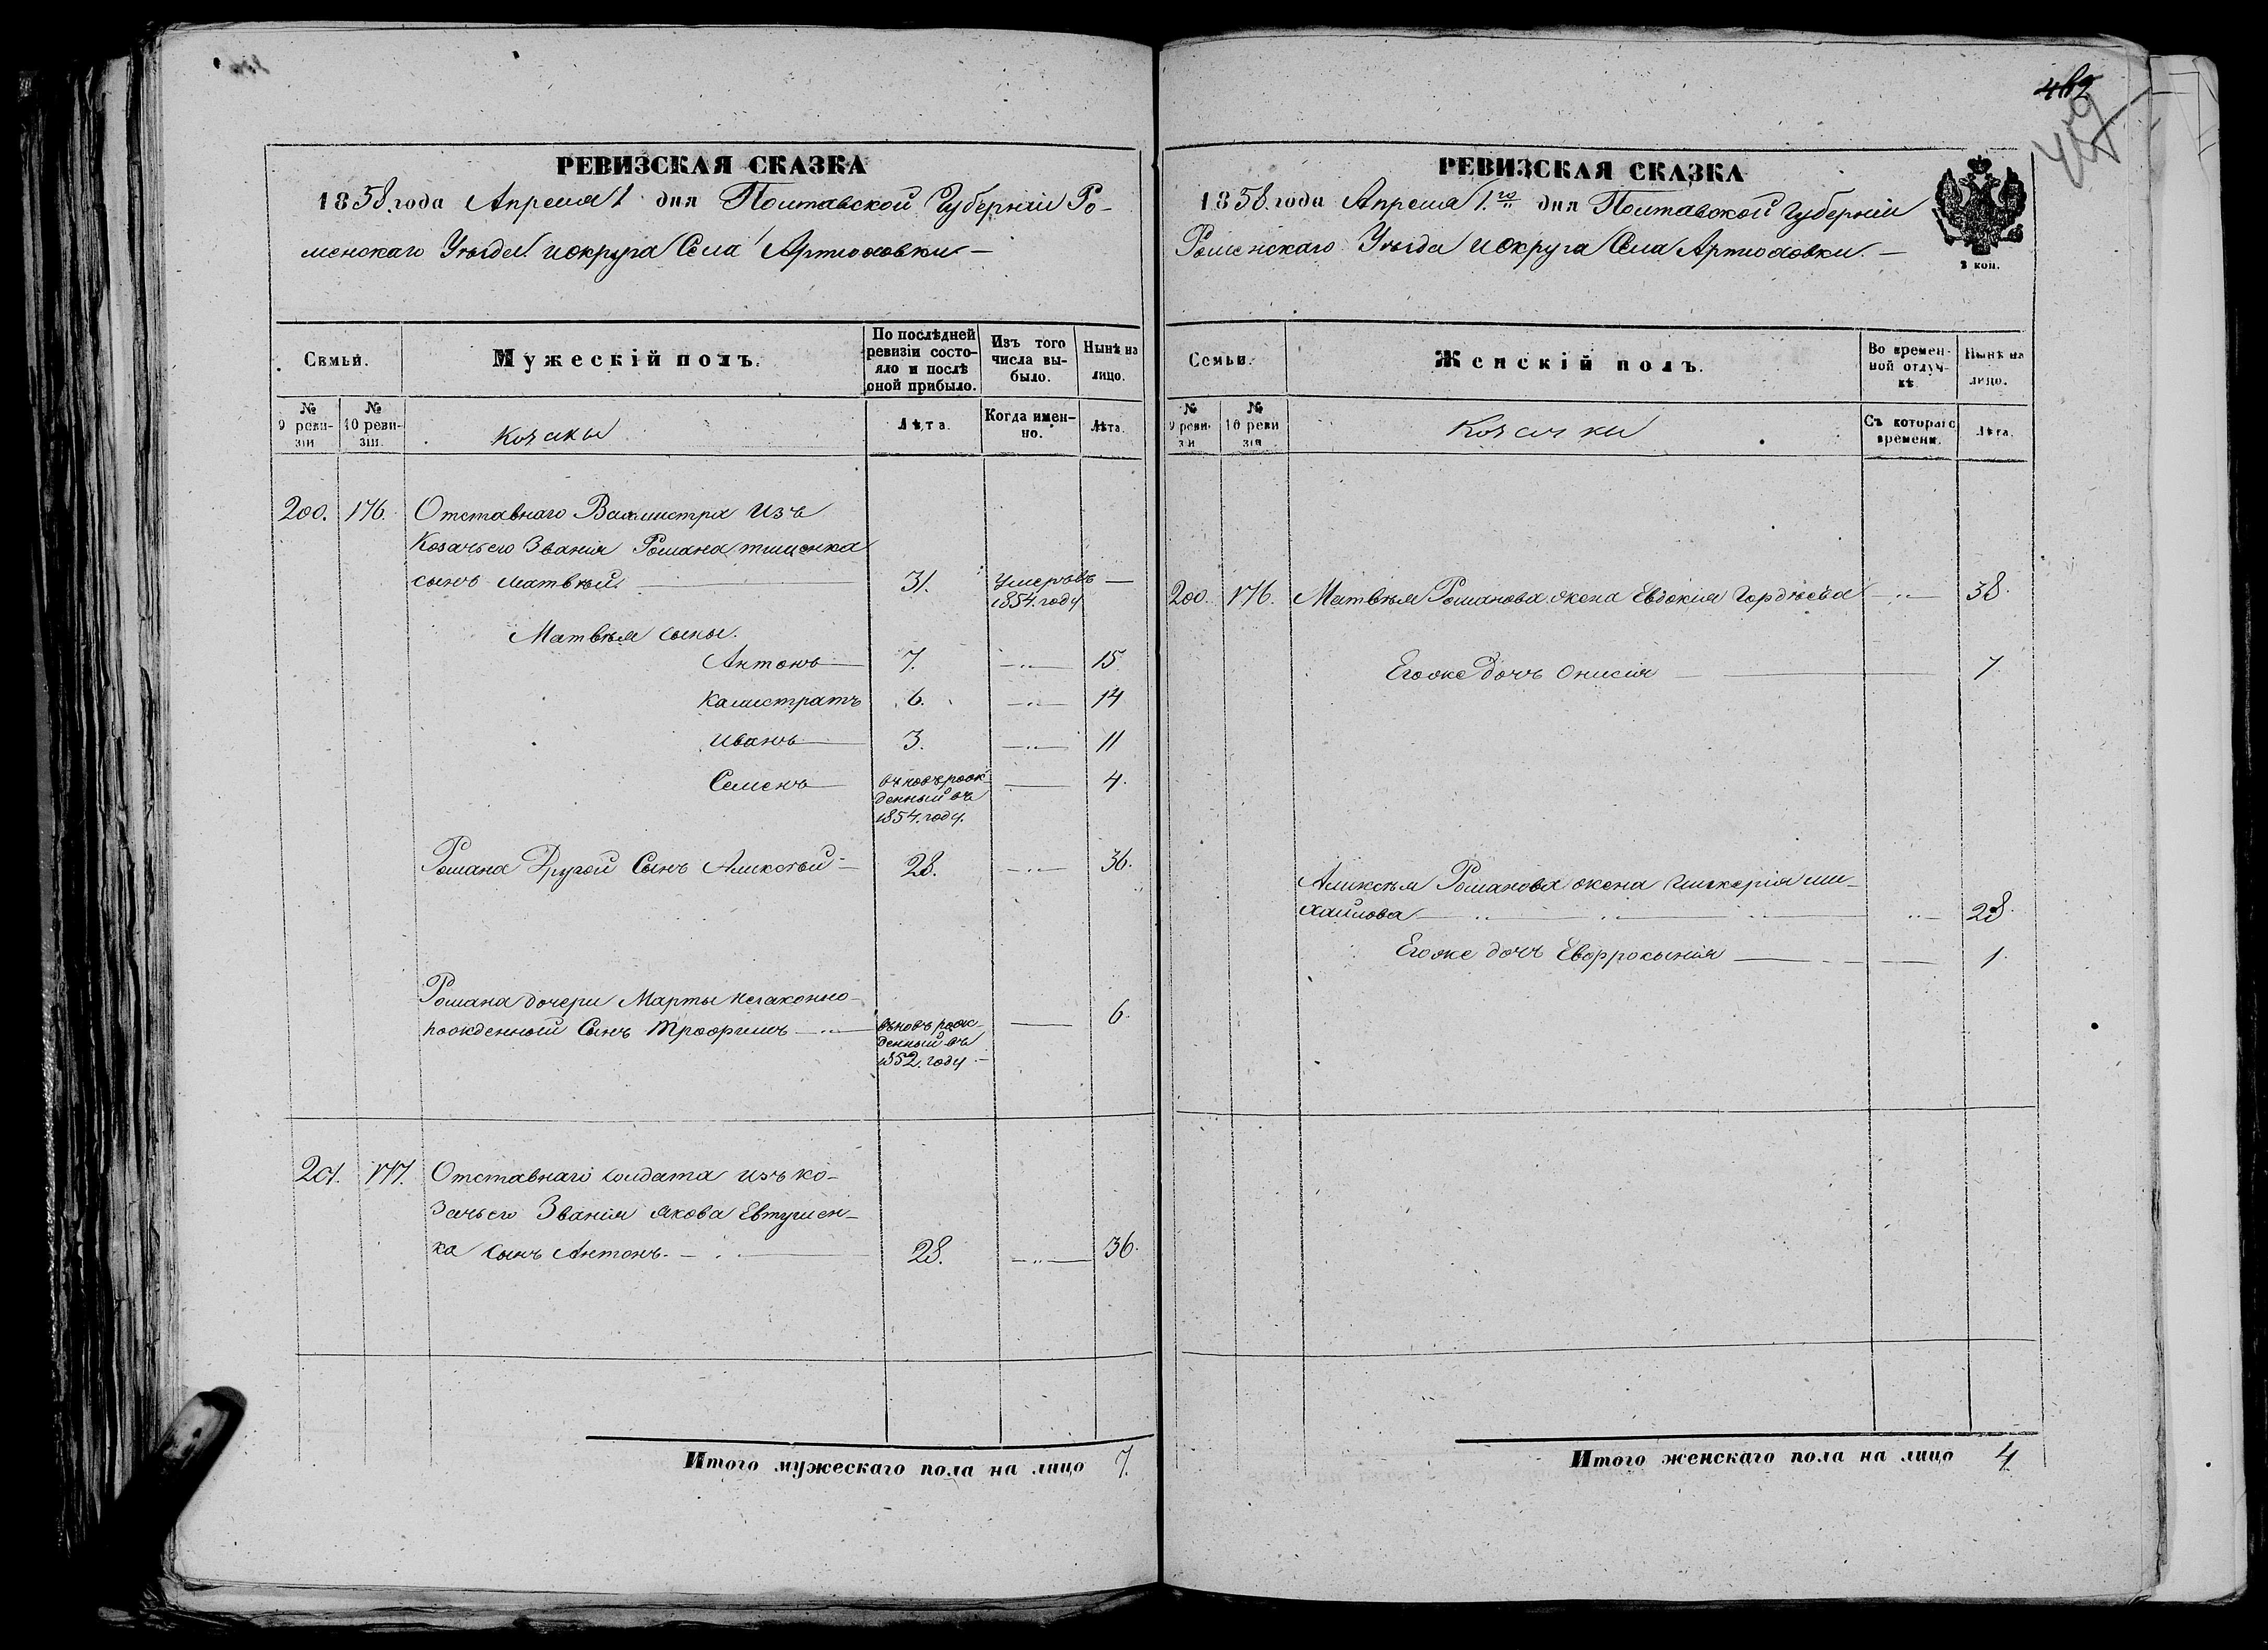 РЕВИЗСКАЯ СКАЗКА
1858. года Апреля 1 дня Полтавской Губерніи Ро-
менскаго Уѣзда и округа Села Артюховки —
Семьи.
Мужескій полъ.
По послѣдней ревизіи состояло и послѣ оной прибыло.
Изъ того числа выбыло.
Нынѣ на лицо.
№ 9 ревизіи
№ 10 ревизіи.
Козаки
Лѣта.
Когда именно.
Лѣта.
200. 176. Отставнаго Вахмистра Изъ
Козачьего Званія Романа Тищенка
сынъ Матвѣй. — 31. Умеръ въ —
1854. году
Матвѣя сыны.
Антонъ — 7. —„— 15
Калистратъ 6. —„— 14
Иванъ — 3. —„— 11
Семенъ — въновърож- — 4.
денный въ
1854. году.
Романа Другой Сынъ Алексѣй — 28. —„— 36.
Романа дочери Марты незаконно-
рожденный Сынъ Трофимъ — въновърож- — 6.
денный въ
1852. году —
201. 177. Отставнаго Солдата изъ ко-
зачьего Званія Якова Евтушен-
ка сынъ Антонъ. — 28. —„— 36.
Итого мужескаго пола на лицо 7.
РЕВИЗСКАЯ СКАЗКА
1858. года Апреля 1.го дня Полтавской Губерніи
Роменскаго Уѣзда и округа Села Артюховки. —
2 коп.
Семьи.
Женскій полъ.
Во временной отлучкѣ.
Нынѣ на лицо.
№ 9 ревизіи
№ 10 ревизія
Козачки
Съ котораго времени.
Лѣта.
200. 176. Матвѣя Романова жена Евдокия Гордѣева —„— 38.
Егоже дочь Онисия — 7.
Алексѣя Романова жена Гликерія Ми-
хайлова — „— 28.
Егоже дочь Евфросинія — 1.
Итого женскаго пола на лицо 4